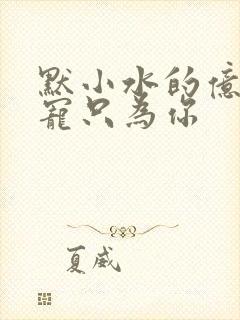 默小水的億
寵只為你
夏威